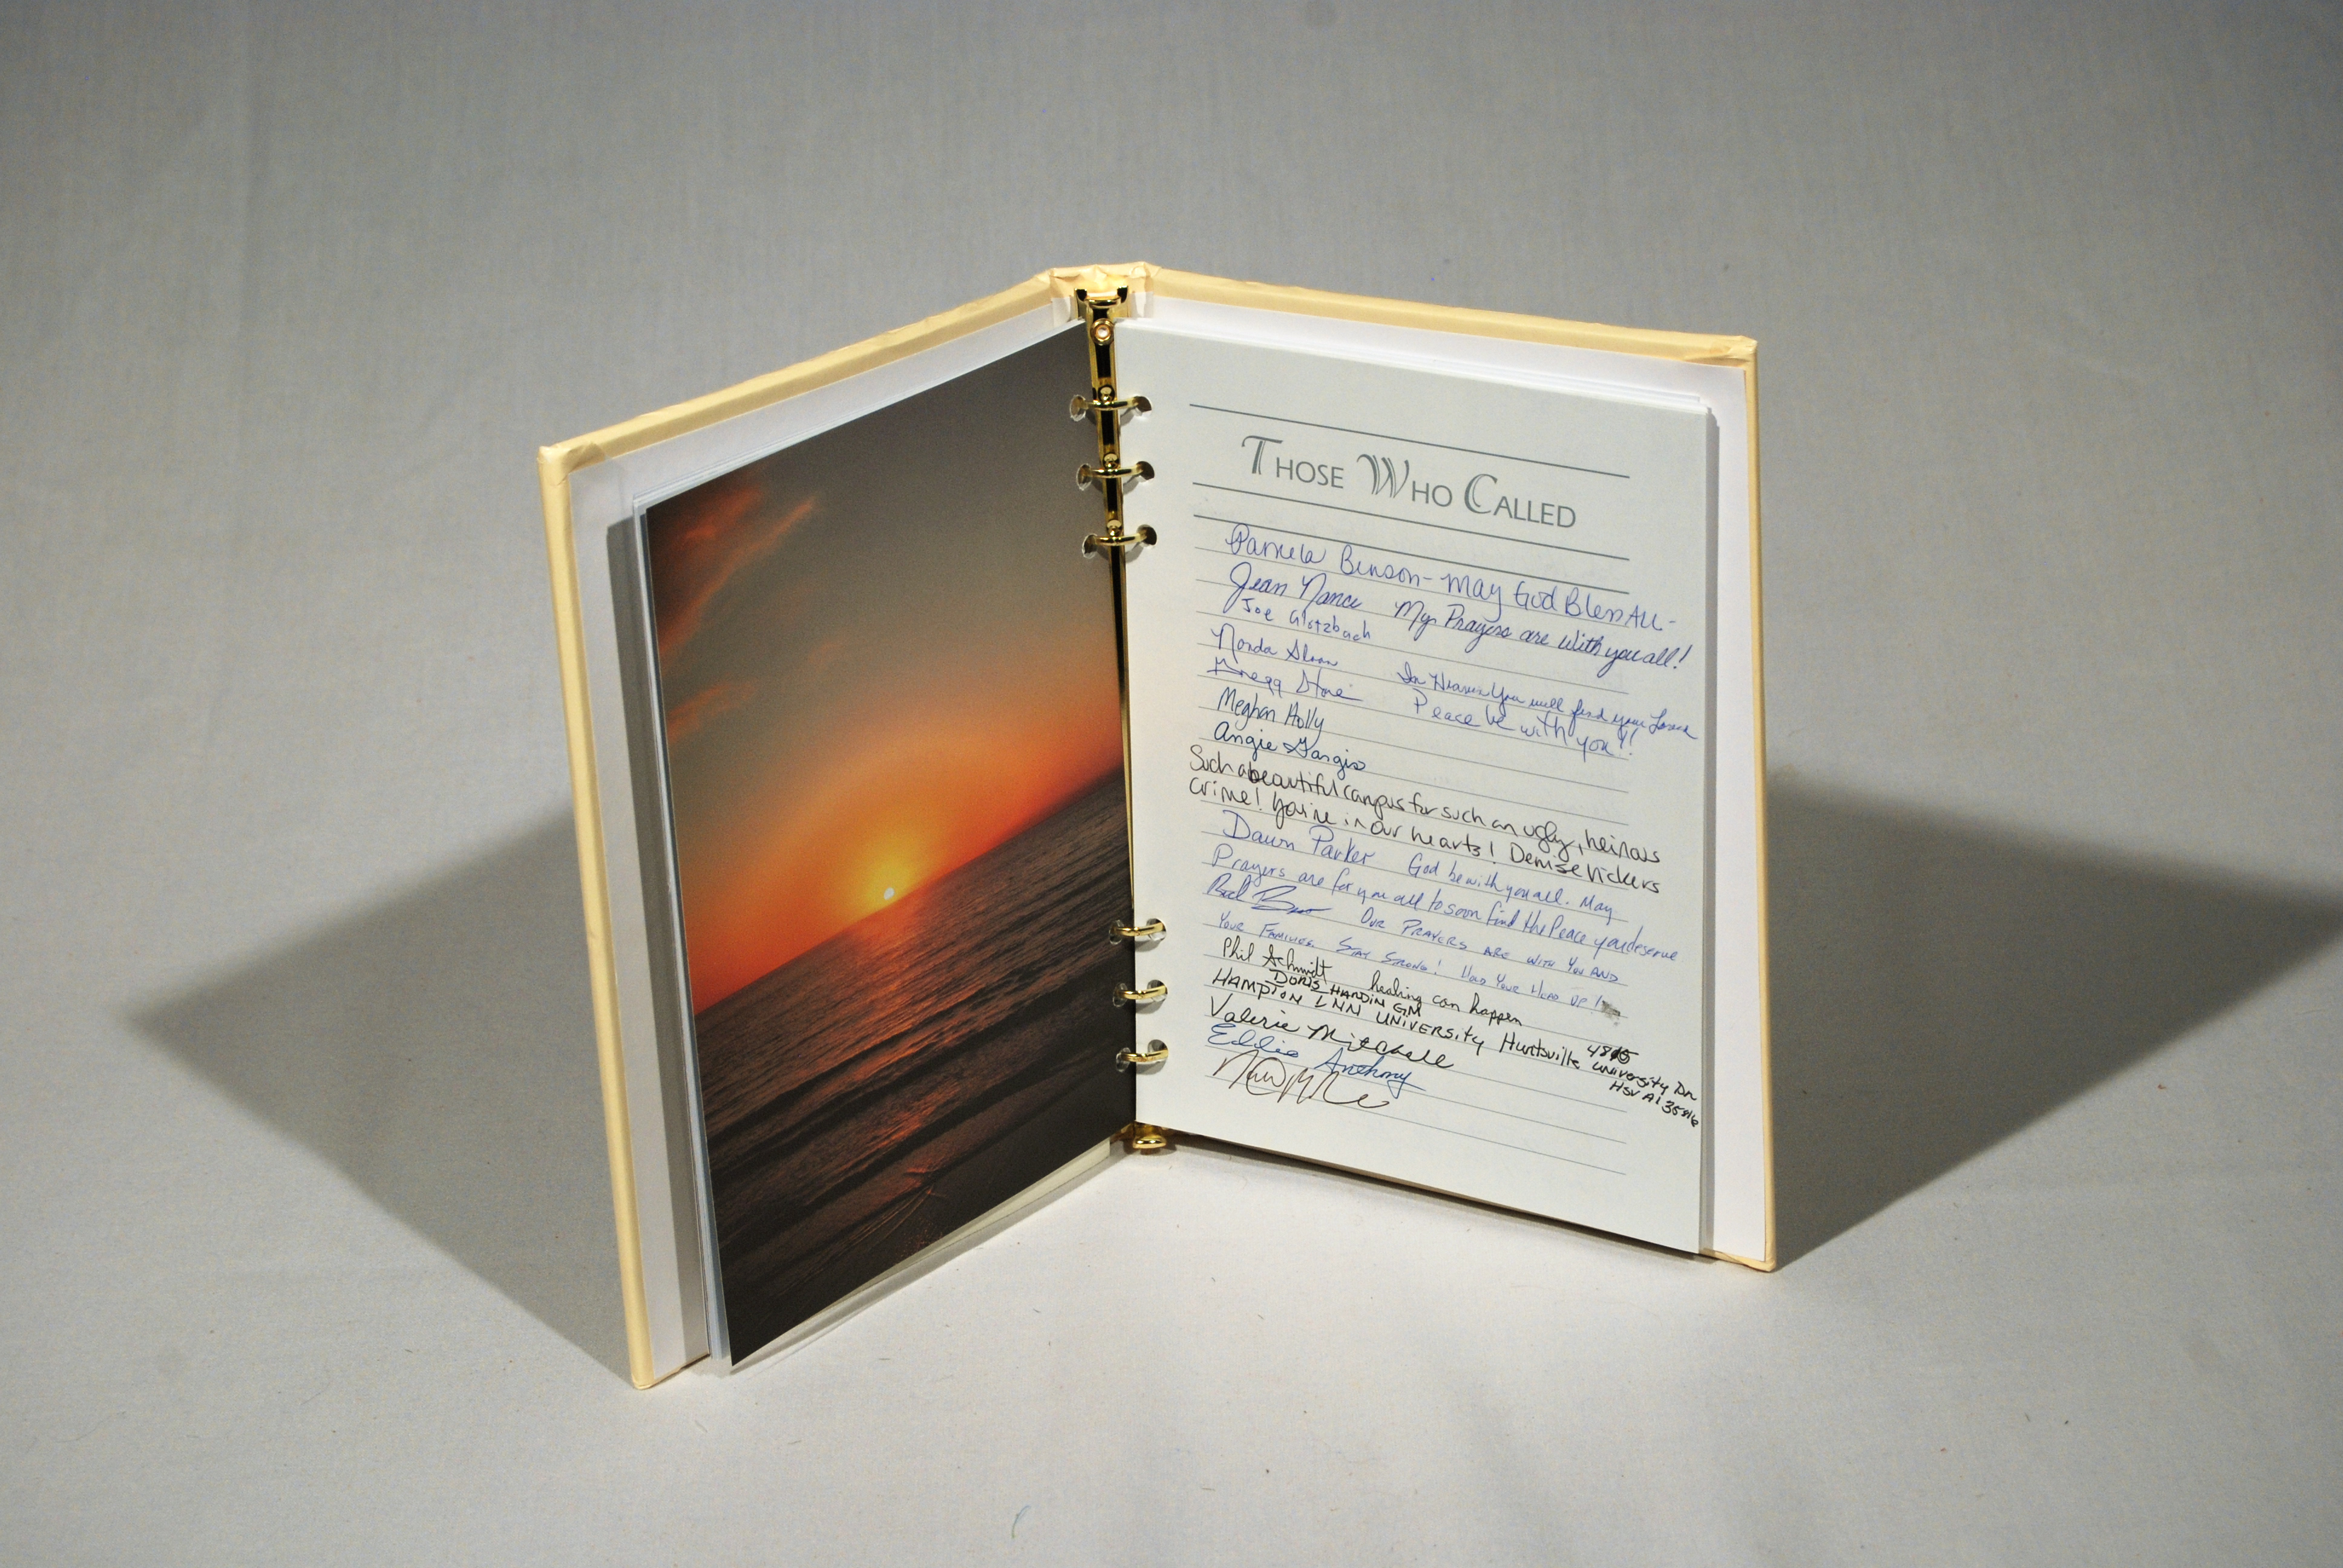 THOSE WHO CALLED
Pamela Benson - May God Bless ALL -
Jean Nance My Prayers are with you all!
Joe Glotzbach
Nonda Sloan In Heaven You will find your
Gregg Stone Peace be with you!!
Meghan Holly
Angie Gargis
Such a beautiful campus for such an ugly, heinous
crime! You're in our hearts! Denise Vickers
Dawn Parker God be with you all. May
Prayers are for you all to soon find the Peace you deserve
OUR PRAYERS ARE WITH YOU AND
YOUR FAMILIES. STAY STRONG! HOLD YOUR HEAD UP!
Phil Schmidt healing can happen
DORIS HARDIN GM
HAMPTON INN UNIVERSITY Huntsville 4815
University Dr
HSV Al 35816
Valerie Mitchell
Eddie Anthony